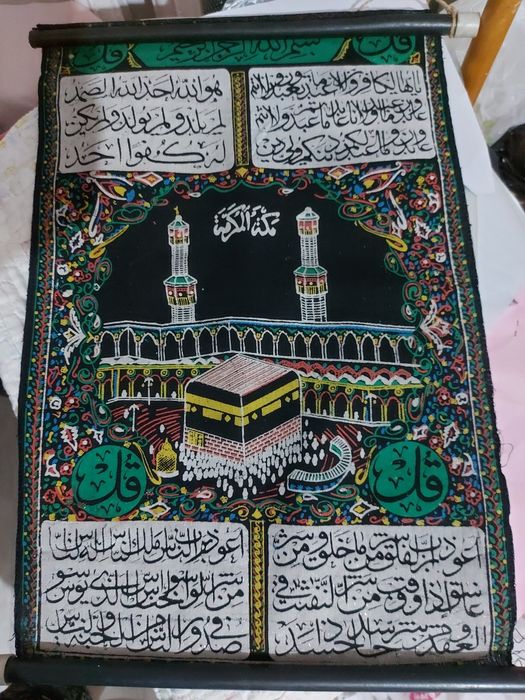 قل بسم الله الرحمن الرحيم قل
يا ايها الكافرون لا اعبد ما تعبدون ولا انتم
عابدون ما اعبد ولا انا عابد ما عبدتم ولا انتم
عابدون ما اعبد لكم دينكم ولي دين
هو الله احد الله الصمد
لم يلد ولم يولد ولم يكن
له كفوا احد
مكة المكرمة
قل
قل
اعوذ برب الفلق من شر ما خلق ومن شر
غاسق اذا وقب ومن شر النفثت في
العقد ومن شر حاسد اذا حسد
اعوذ برب الناس ملك الناس اله الناس
من شر الوسواس الخناس الذي يوسوس
في صدور الناس من الجنة والناس